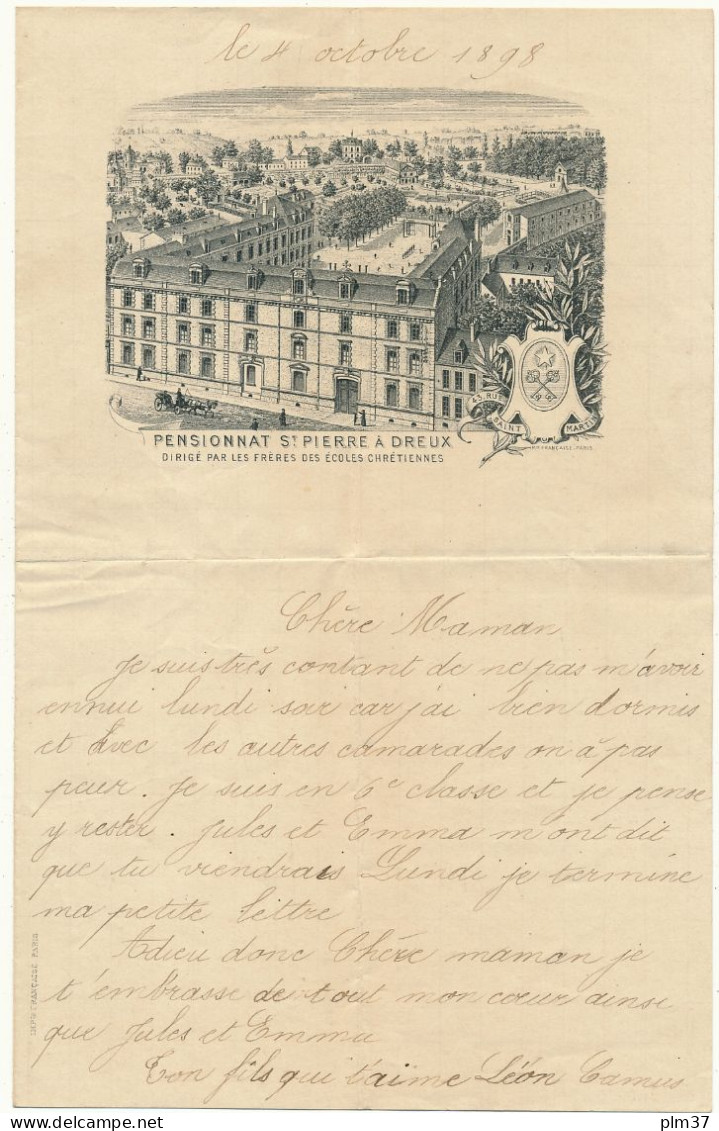 le 4 octobre 1898
PENSIONNAT ST PIERRE À DREUX
DIRIGÉ PAR LES FRÈRES DES ÉCOLES CHRÉTIENNES
43, RUE
SAINT
MARTIN
IMP. FRANÇAISE. PARIS.
Chère Maman
Je suis très contant de ne pas m'avoir
ennui lundi soir car j'ai bien dormis
et Avec les autres camarades on à pas
peur. Je suis en 6e classe et je pense
y rester. Jules et Emma m'ont dit
que tu viendrais Lundi je termine
ma petite lettre
Adieu donc Chère maman je
t'embrasse de tout mon cœur ainse
que Jules et Emma
Ton fils qui t'aime Léon Camus
IMPIE FRANÇAISE PARIS
plm_37